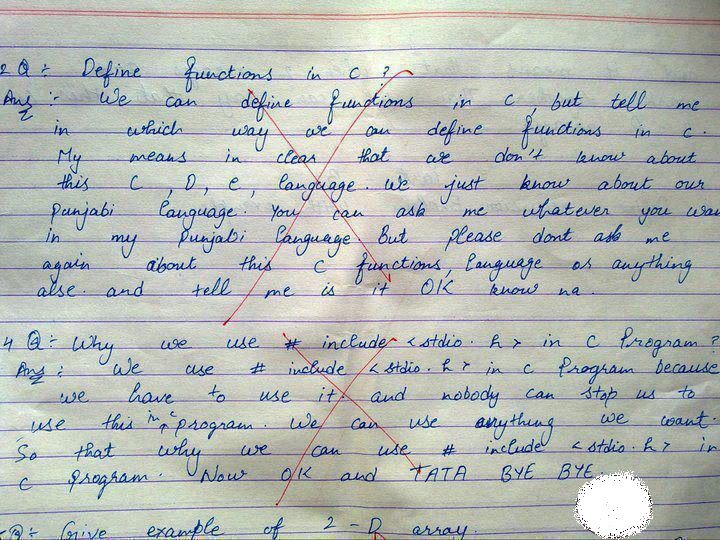 2 Q :- Define functions in C ?
Ans :- We can define functions in C , but tell me
in which way we can define functions in C .
My means in clear that we don't know about
this C , D , e , language . We just know about our
Punjabi language . You can ask me whatever you wan
in my Punjabi language . But please dont ask me
again about this C functions , language or anything
alse . and tell me is it OK know na .
4 Q :- Why we use # include <stdio . h> in C Program ?
Ans : We use # include <stdio . h> in C Program because
we have to use it . and nobody can stop us to
use this in C program . We can use anything we want .
So that why we can use # include <stdio . h> in
C Program . Now OK and TATA BYE BYE .
Q :- Give example of 2 - D array .